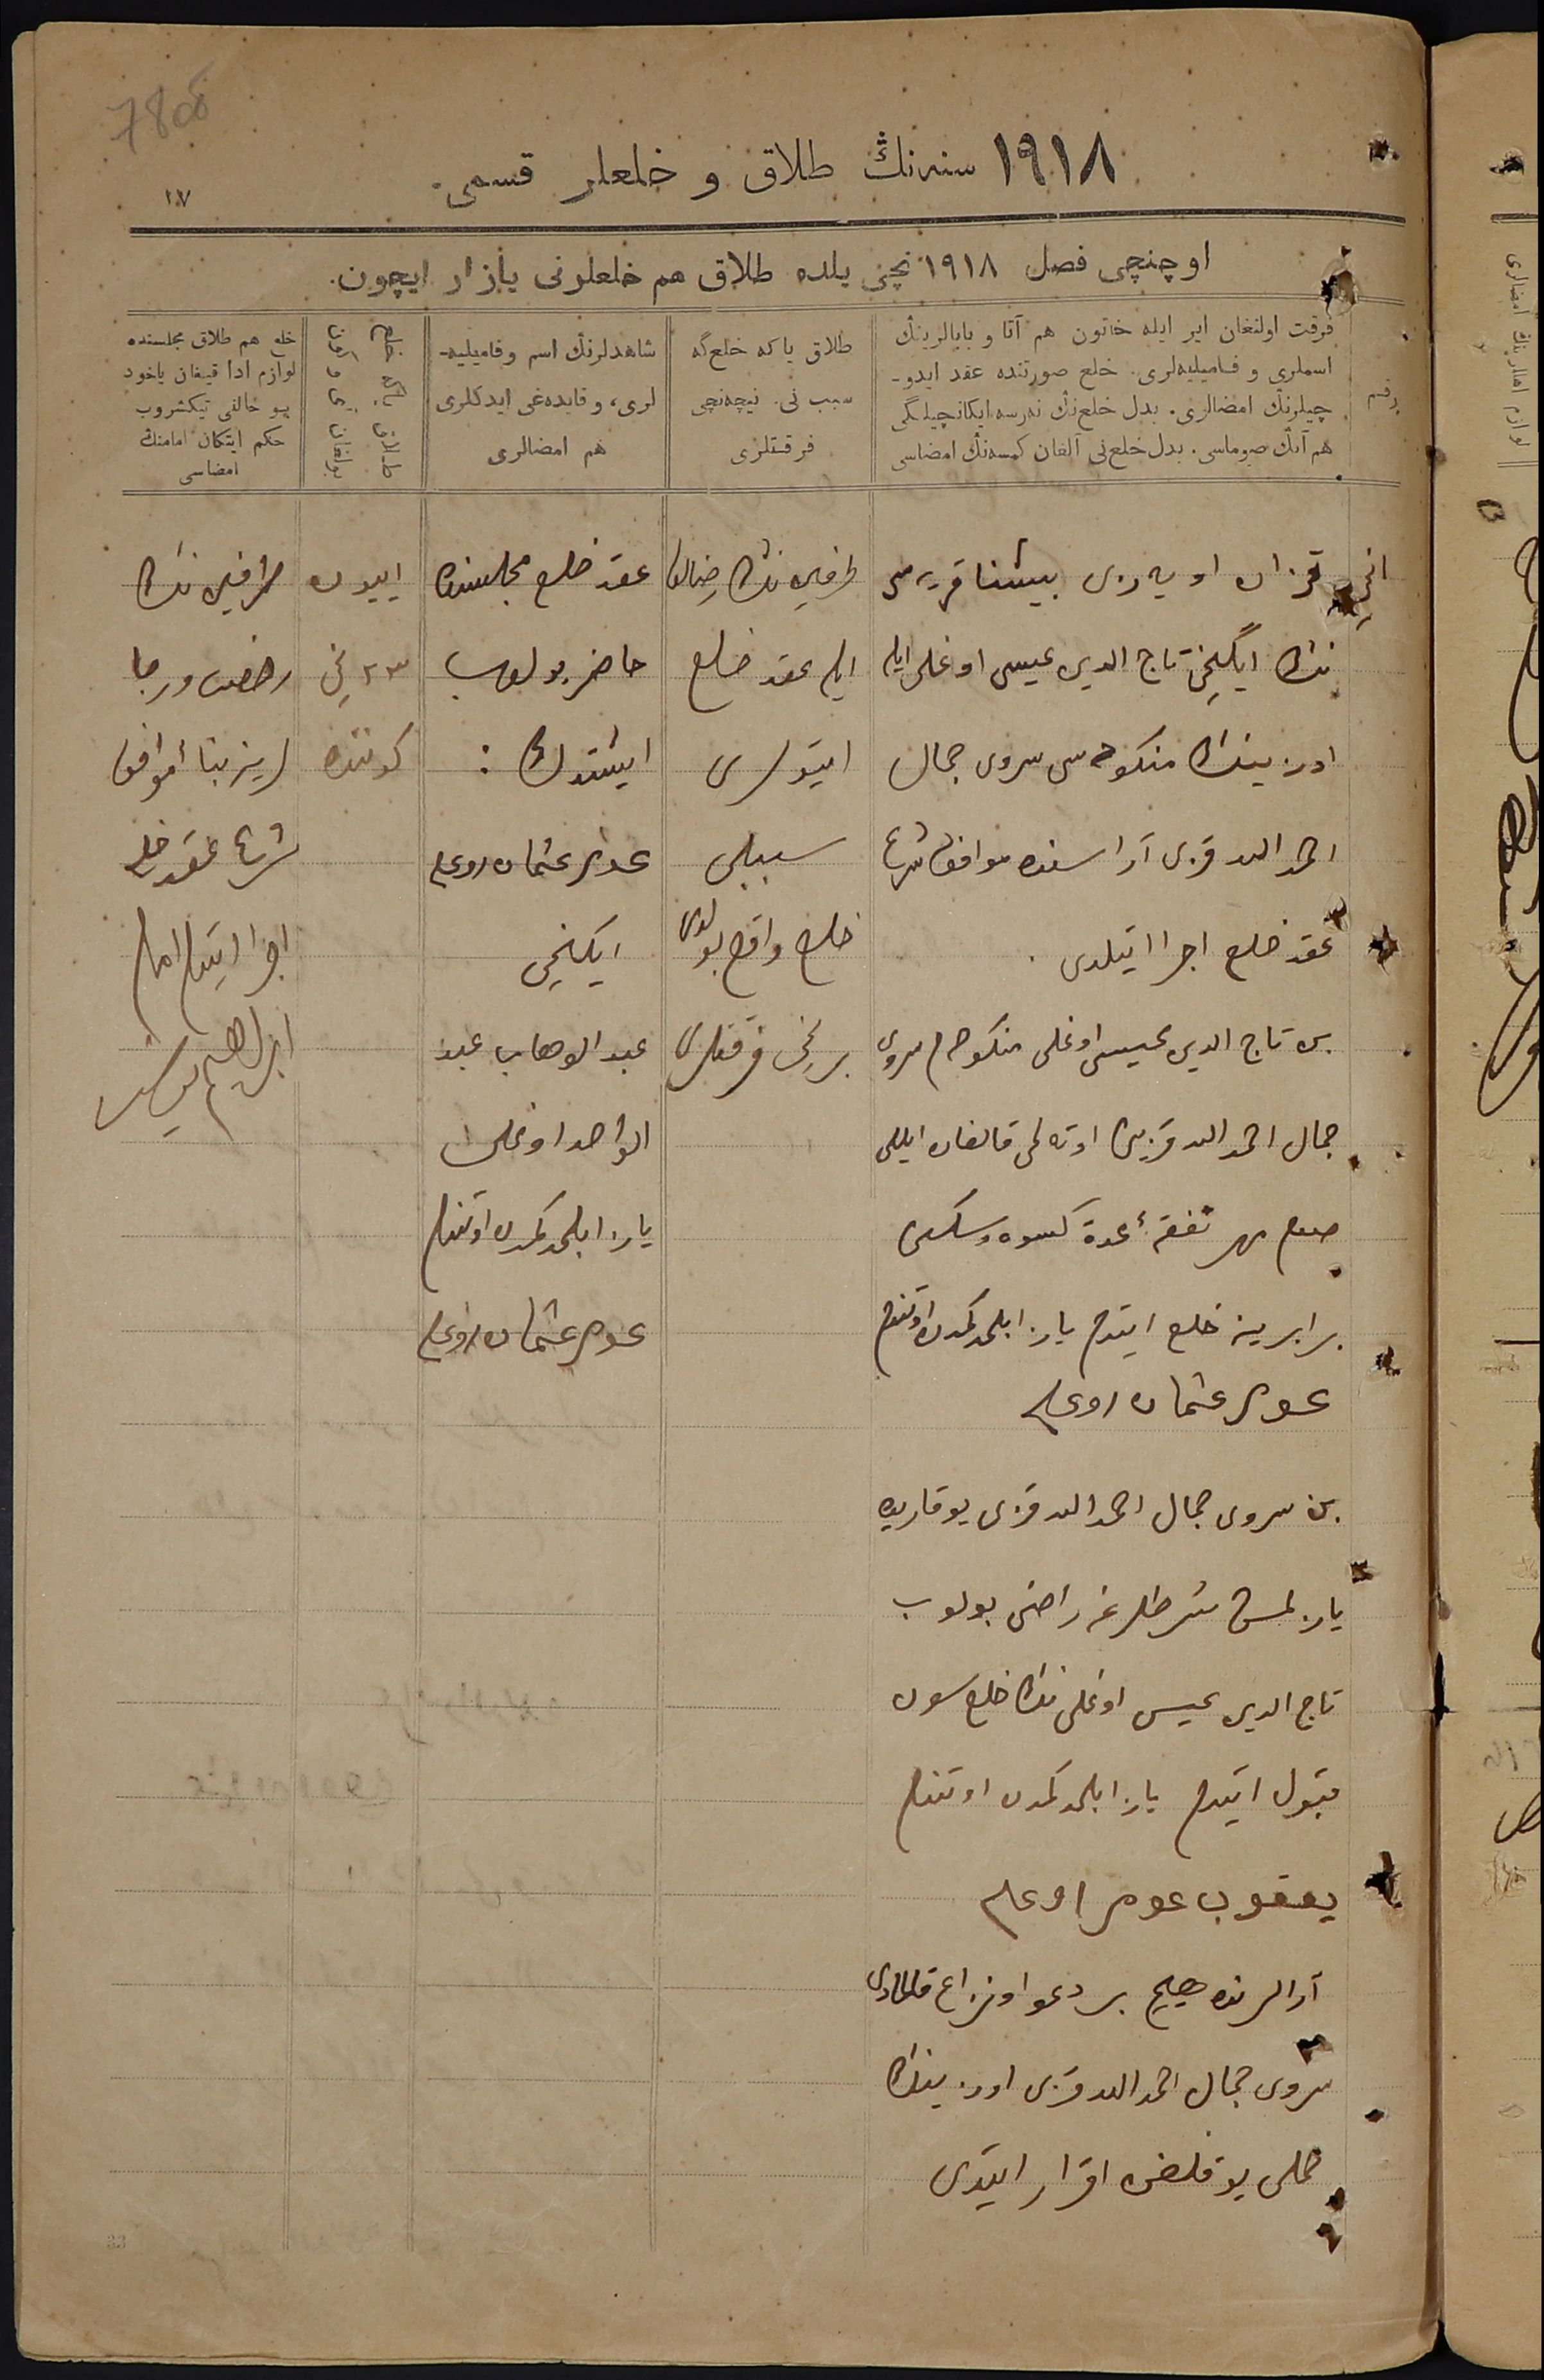 78об
١٩١٨ سنه‌نڭ طلاق و خلعلر قسمی.
١٧
اوچنچی فصل ١٩١٨ نچی یلده طلاق هم خلعلرنی یازار ایچون.
رقم
فرقت اولنغان ایر ایله خاتون هم آتا و بابالرینڭ
اسملری و فامیلیه‌لری. خلع صورتنده عقد ایدو-
چیلرنڭ امضالری. بدل خلع‌نڭ نه‌رسه ایکانچیلگی
هم آنڭ صوماسی. بدل خلع‌نی آلغان کمسه‌نڭ امضاسی
طلاق یا که خلع‌گه
سبب نی. نیچه‌نچی
فرقتلری
شاهدلرنڭ اسم و فامیلیه-
لری، و قایده‌غی ایدکلری
هم امضالری
طلاق یاکه خلع
بولغان آی و کون
خلع هم طلاق مجلسنده
لوازم ادا قیلغان یاخود
بو حالنی تیکشروب
حکم ایتکان امامنڭ
امضاسی
قزان اویه‌زی بیشنا قریه سی
نڭ ایکنچی تاج الدین عیسی اوغلی ایله
اوزینڭ منکوحه سی سروی جمال
احمدالله قزی آراسنده موافق شرع
عقد خلع اجرا ایتلدی.
بن تاج الدین عیسی اوغلی منکوحه م سروی
جمال احمدالله قزینی اوته لمی قالغان ایللی
صوم مهر نفقهٔ عدة کسوه و سکنی
برابرینه خلع ایتدم یازا بلمدکمدن اوتندم
عومر عثمان اوغلی
بن سروی جمال احمدالله قزی یوقاریده
یازلمش شرطلرغه راضی بولوب
تاج الدین عیسی اوغلی نڭ خلع سون
قبول ایتدم یازا بلمدکمدن اوتندم
یعقوب عومر اوغلی
آرالرنده هیچ بر دعوا و نزاع قالمادی
سروی جمال احمدالله قزی اوزینڭ
حملی یوقلغن اقرار ایتدی
طرفین نڭ رضالقی
ایله عقد خلع
ایتولری
سببلی
خلع واقع بولدی
برنچی فرقتلری
عقد خلع مجلسنده
حاضر بولوب
ایشتدك :
عومر عثمان اوغلی
ایکنچی
عبد الوهاب عبد
الواحد اوغلی
یازا بلمدکمدن اوتندم
عومر عثمان اوغلی
اییون
٢٣ نچی
کوننده
طرفین نڭ
رخصت و رجا
لرینه بناءً موافق
شرع عقد خلع
اجرا ایتدم امام
ابراهیم
33